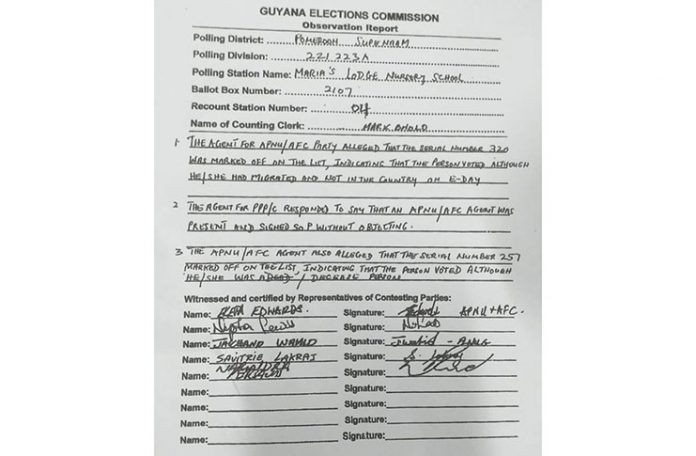 GUYANA ELECTIONS COMMISSION
Observation Report
Polling District: POMEROON SUPENAAM
Polling Division: 221223A
Polling Station Name: MARIA'S LODGE NURSERY SCHOOL
Ballot Box Number: 2107
Recount Station Number: 04
Name of Counting Clerk: MARK
1 THE AGENT FOR APNU/AFC PARTY ALLEGED THAT THE SERIAL NUMBER 320
WAS MARKED OFF ON THE LIST, INDICATING THAT THE PERSON VOTED ALTHOUGH
HE/SHE HAD MIGRATED AND NOT IN THE COUNTRY ON E-DAY
2 THE AGENT FOR PPP/C RESPONDED TO SAY THAT AN APNU/AFC AGENT WAS
PRESENT AND SIGNED SOP WITHOUT OBJECTING.
3 THE APNU/AFC AGENT ALSO ALLEGED THAT THE SERIAL NUMBER 257
MARKED OFF ON THE LIST, INDICATING THAT THE PERSON VOTED ALTHOUGH
HE/SHE WAS A DEAD / DECEASE PERSON
Witnessed and certified by Representatives of Contesting Parties:
Name: EDWARDS. Signature: APNU+AFC.
Name: Lewis Signature:
Name: Signature:
Name: SAVITRIE LAKRAJ Signature:
Name: Signature:
Name: Signature:
Name: Signature:
Name: Signature:
Name: Signature: